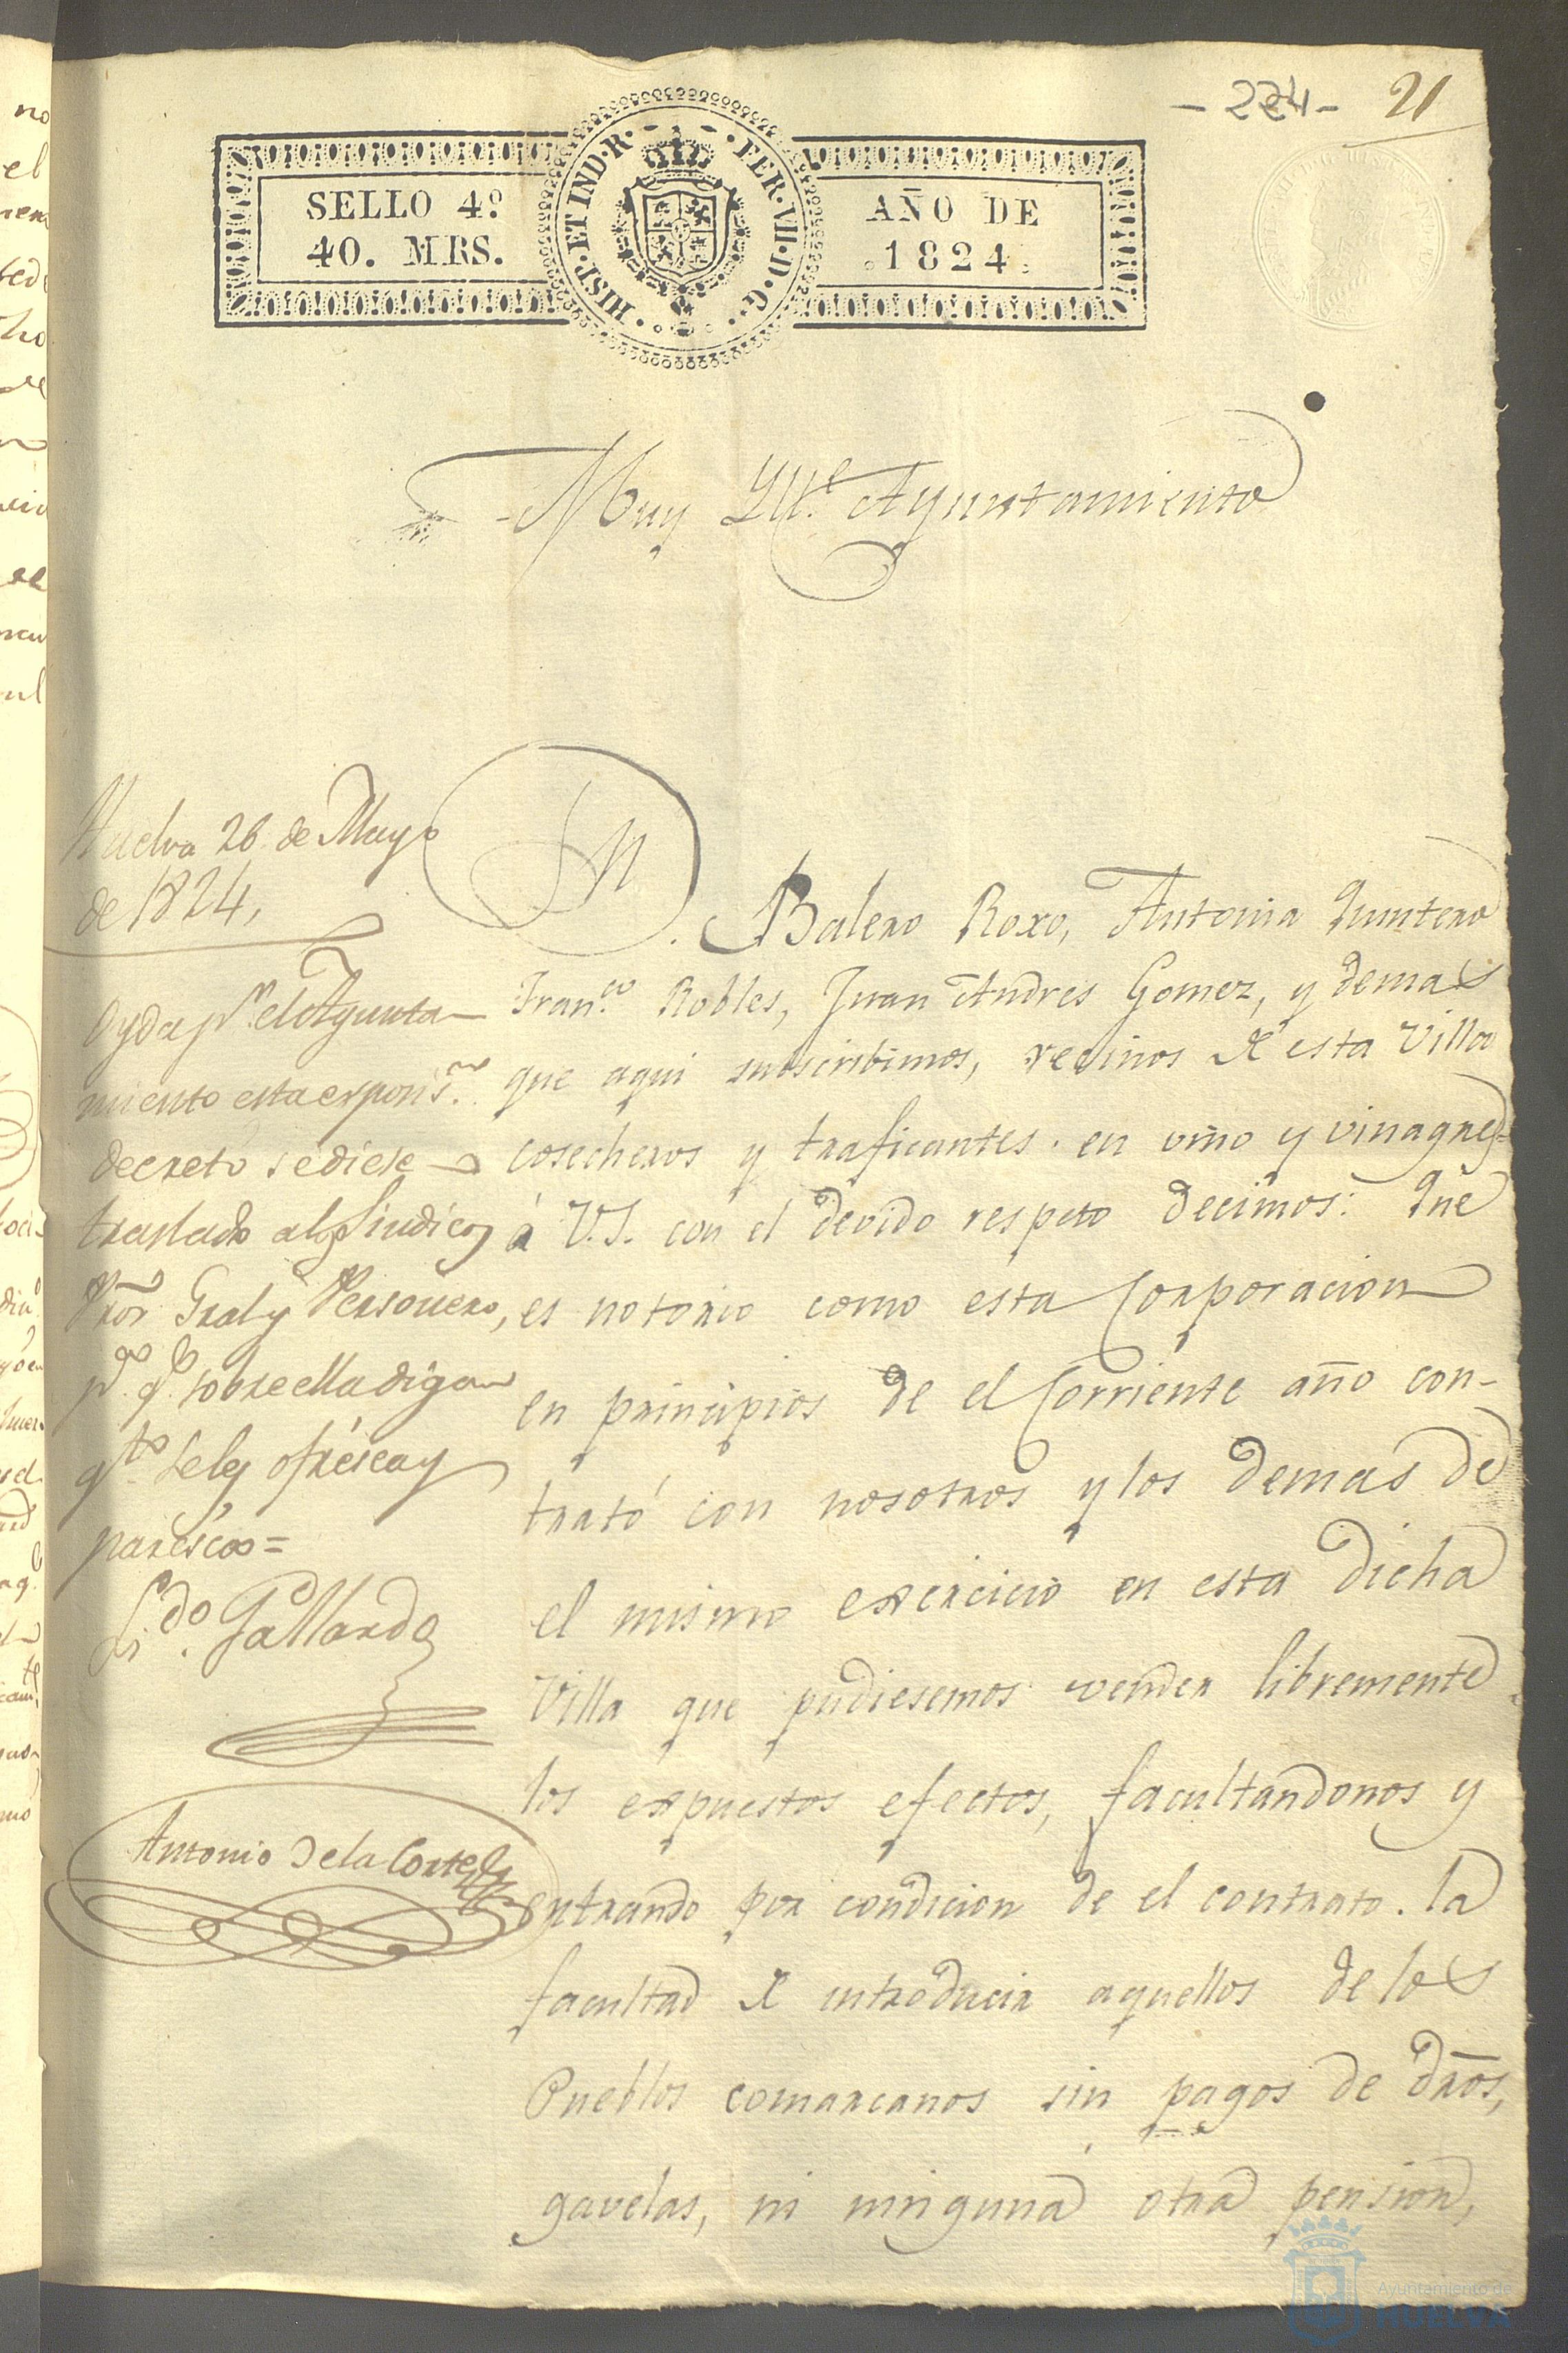 - 224 - 21
SELLO 4º
40. MRS.
HISP. ET IND. R. FER. VII. D. G.
AÑO DE
1824.
Muy Ylle. Ayuntamiento
Huelva 26 de Mayo
de 1824,
Oyda pr. el Ayunta-
miento esta expons.on
decretó se diese
traslado al Sindico
Pror. Gral y Personero,
pa. qe. sobre ella digan
qto. se les ofresca y
paresca=
Lido. Gallardo
Antonio de la Corte
Dn. Balero Roxo, Antonia Quintero
Fran.co Robles, Juan Andres Gomez, y demas
que aqui subscribimos, vecinos de esta Villa
cosecheros y traficantes en vino y vinagre,
á V.S. con el devido respeto decimos: Que
es notorio como esta Corporacion
en principios de el Corriente año con-
trató con nosotros y los demas de
el mismo exercicio en esta dicha
Villa que pudiesemos vender libremente
los expuestos efectos, facultandonos y
entrando por condicion de el contrato. la
facultad de introducir aquellos de los
Pueblos comarcanos sin pagos de dros,
gavelas, ni ninguna otra pension,
Ayuntamiento de
HUELVA